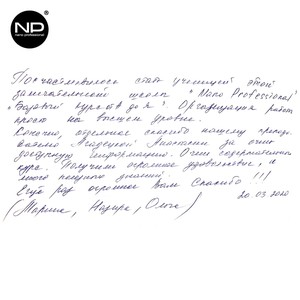 NP
nano professional
Посчастливилось стать ученицей этой
замечательной школы "Nano Professional"
"Базовый курс от А до Я". Организация работы
просто на высшем уровне.
Конечно, отдельное спасибо нашему препода-
вателю Анастасии за очень
доступную информацию. Очень содержательный
курс. Получили огромное удовольствие, и
много полезных знаний.
Ещё раз огромное Вам Спасибо!!!
20.03.2020
(Марина, Надира, Ольга)